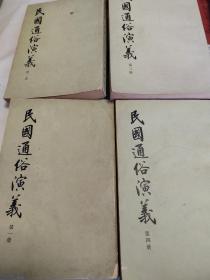 民國通俗演義
民國通俗演義
第二冊
民國通俗演義
第一冊
民國通俗演義
第四冊